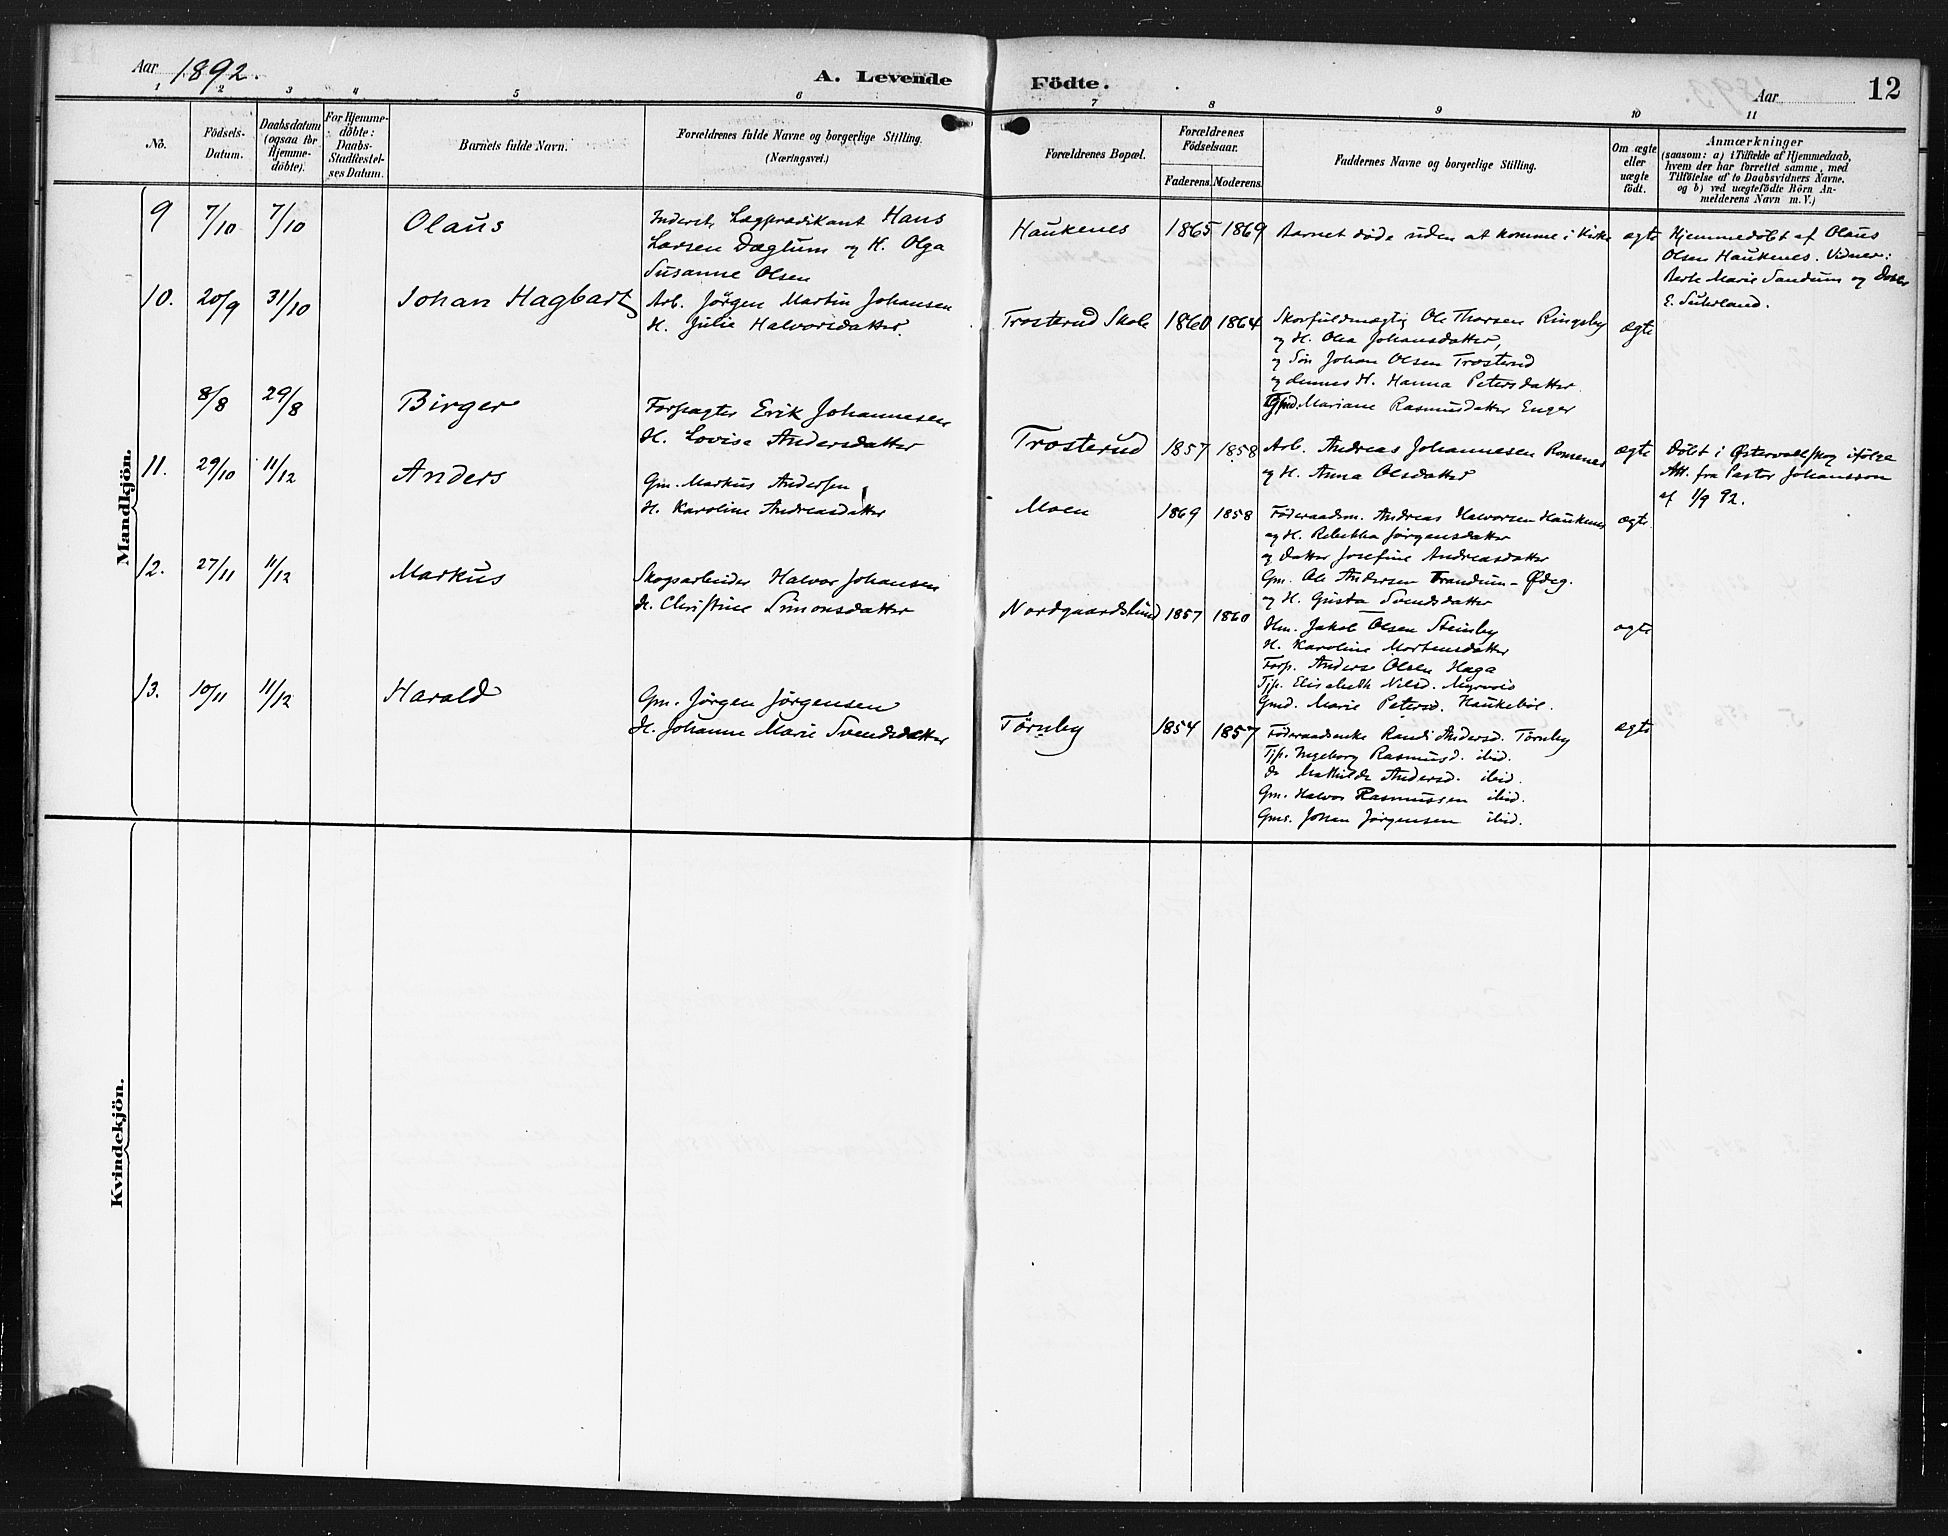 Aar 1892.
A. Levende Födte.
Aar
12
1 2 3 4 5 6 7 8 9 10 11
No.
Födsels-
Datum.
Daabsdatum
(ogsaa för
Hjemme-
döbte).
For Hjemme-
döbte:
Daabs-
Stadfæstel-
ses Datum.
Barnets fulde Navn.
Forældrenes fulde Navne og borgerlige Stilling.
(Næringsvei.)
Forældrenes Bopæl.
Forældrenes
Födselsaar.
Faderens. Moderens.
Faddernes Navne og borgerlige Stilling.
Om ægte
eller
uægte
födt.
Anmærkninger
(saasom: a) i Tilfælde af Hjemmedaab,
hvem der har forrettet samme, med
Tilföielse af to Daabsvidners Navne.
og b) ved uægtefödte Börn An-
melderens Navn m. V.)
Mandkjön.
9 7/10 7/10 Olaus
Inderst, Lægprædikant Hans
Larsen Dæglum og H. Olga
Susanne Olsen
Haukenes 1865 1869
Barnet døde uden at komme i Kirke
ægte
Hjemmedøbt af Olaus
Olsen Haukenes. Vidner:
Marie Sandum og
E.
10. 20/9 31/10 Johan Hagbart
Arb. Jørgen Martin Johansen
H. Julie Halvorsdatter.
Trosterud Skole 1860 1864
Skovfuldmægtig Ole Thorsen Ringsby
og H. Olea Johansdatter,
og Søn Johan Olsen Trosterud
og dennes H. Hanna Petersdatter.
Gmd. Mariane Rasmusdatter Enger
ægte
8/8 29/8 Birger
Forpagter Erik Johannesen
H. Lovise Andersdatter
Trosterud 1857 1858
Arb. Andreas Johannesen Romenes
og H. Anna Olsdatter
ægte
Døbt i Østervallskog ifølge
Att. fra Pastor Johansson
af 1/9 92.
11. 29/10 11/12 Anders
Gm. Markus Andersen
H. Karoline Andreasdatter
Moen 1869 1858
Føderaadsm. Andreas Halvorsen Haukenes
og H. Rebekka Jørgensdatter
og Datter Josefine Andreasdatter
Gm. Ole Andersen Trandum-Ødeg.
og H. Gusta Svendsdatter
ægte
12. 27/11 11/12 Markus
Skogsarbeider Halvor Johansen
H. Christine Simonsdatter
Nordgaardslund 1857 1860
Hm. Jakob Olsen Steinby
H. Karoline Mortensdatter
Forp. Anders Olsen Haga
Tjp. Elisabeth Nilsd. Myrvold
Gmd. Marie Petersd. Haukebøl.
ægte
13. 10/11 11/12 Harald
Gm. Jørgen Jørgensen
H. Johanne Marie Svendsdatter
Tørnby 1854 1857
Føderaadsenke Randi Andersd. Tørnby
Tjp. Ingeborg Rasmusd. ibid.
do Mathilde Andersd. ibid.
Gm. Halvor Rasmussen ibid.
Gms. Johan Jørgensen ibid.
ægte
Kvindekjön.